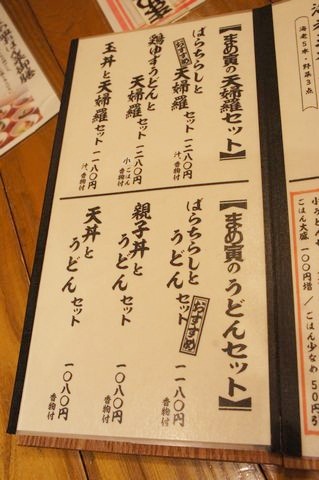 【まめ寅の天婦羅セット】
おすすめ
ばらちらしと天婦羅セット 一二八〇円
汁、香物付
鶏ゆずうどんと天婦羅セット 一二八〇円
小ごはん香物付
玉丼と天婦羅セット 一一八〇円
汁、香物付
【まめ寅のうどんセット】
ばらちらしとうどんセット おすすめ 一一八〇円
香物付
親子丼とうどんセット 一〇八〇円
香物付
天丼とうどんセット 一〇八〇円
香物付
海老5本・野菜3点
ごはん大盛 100円増 / ごはん少なめ 50円引